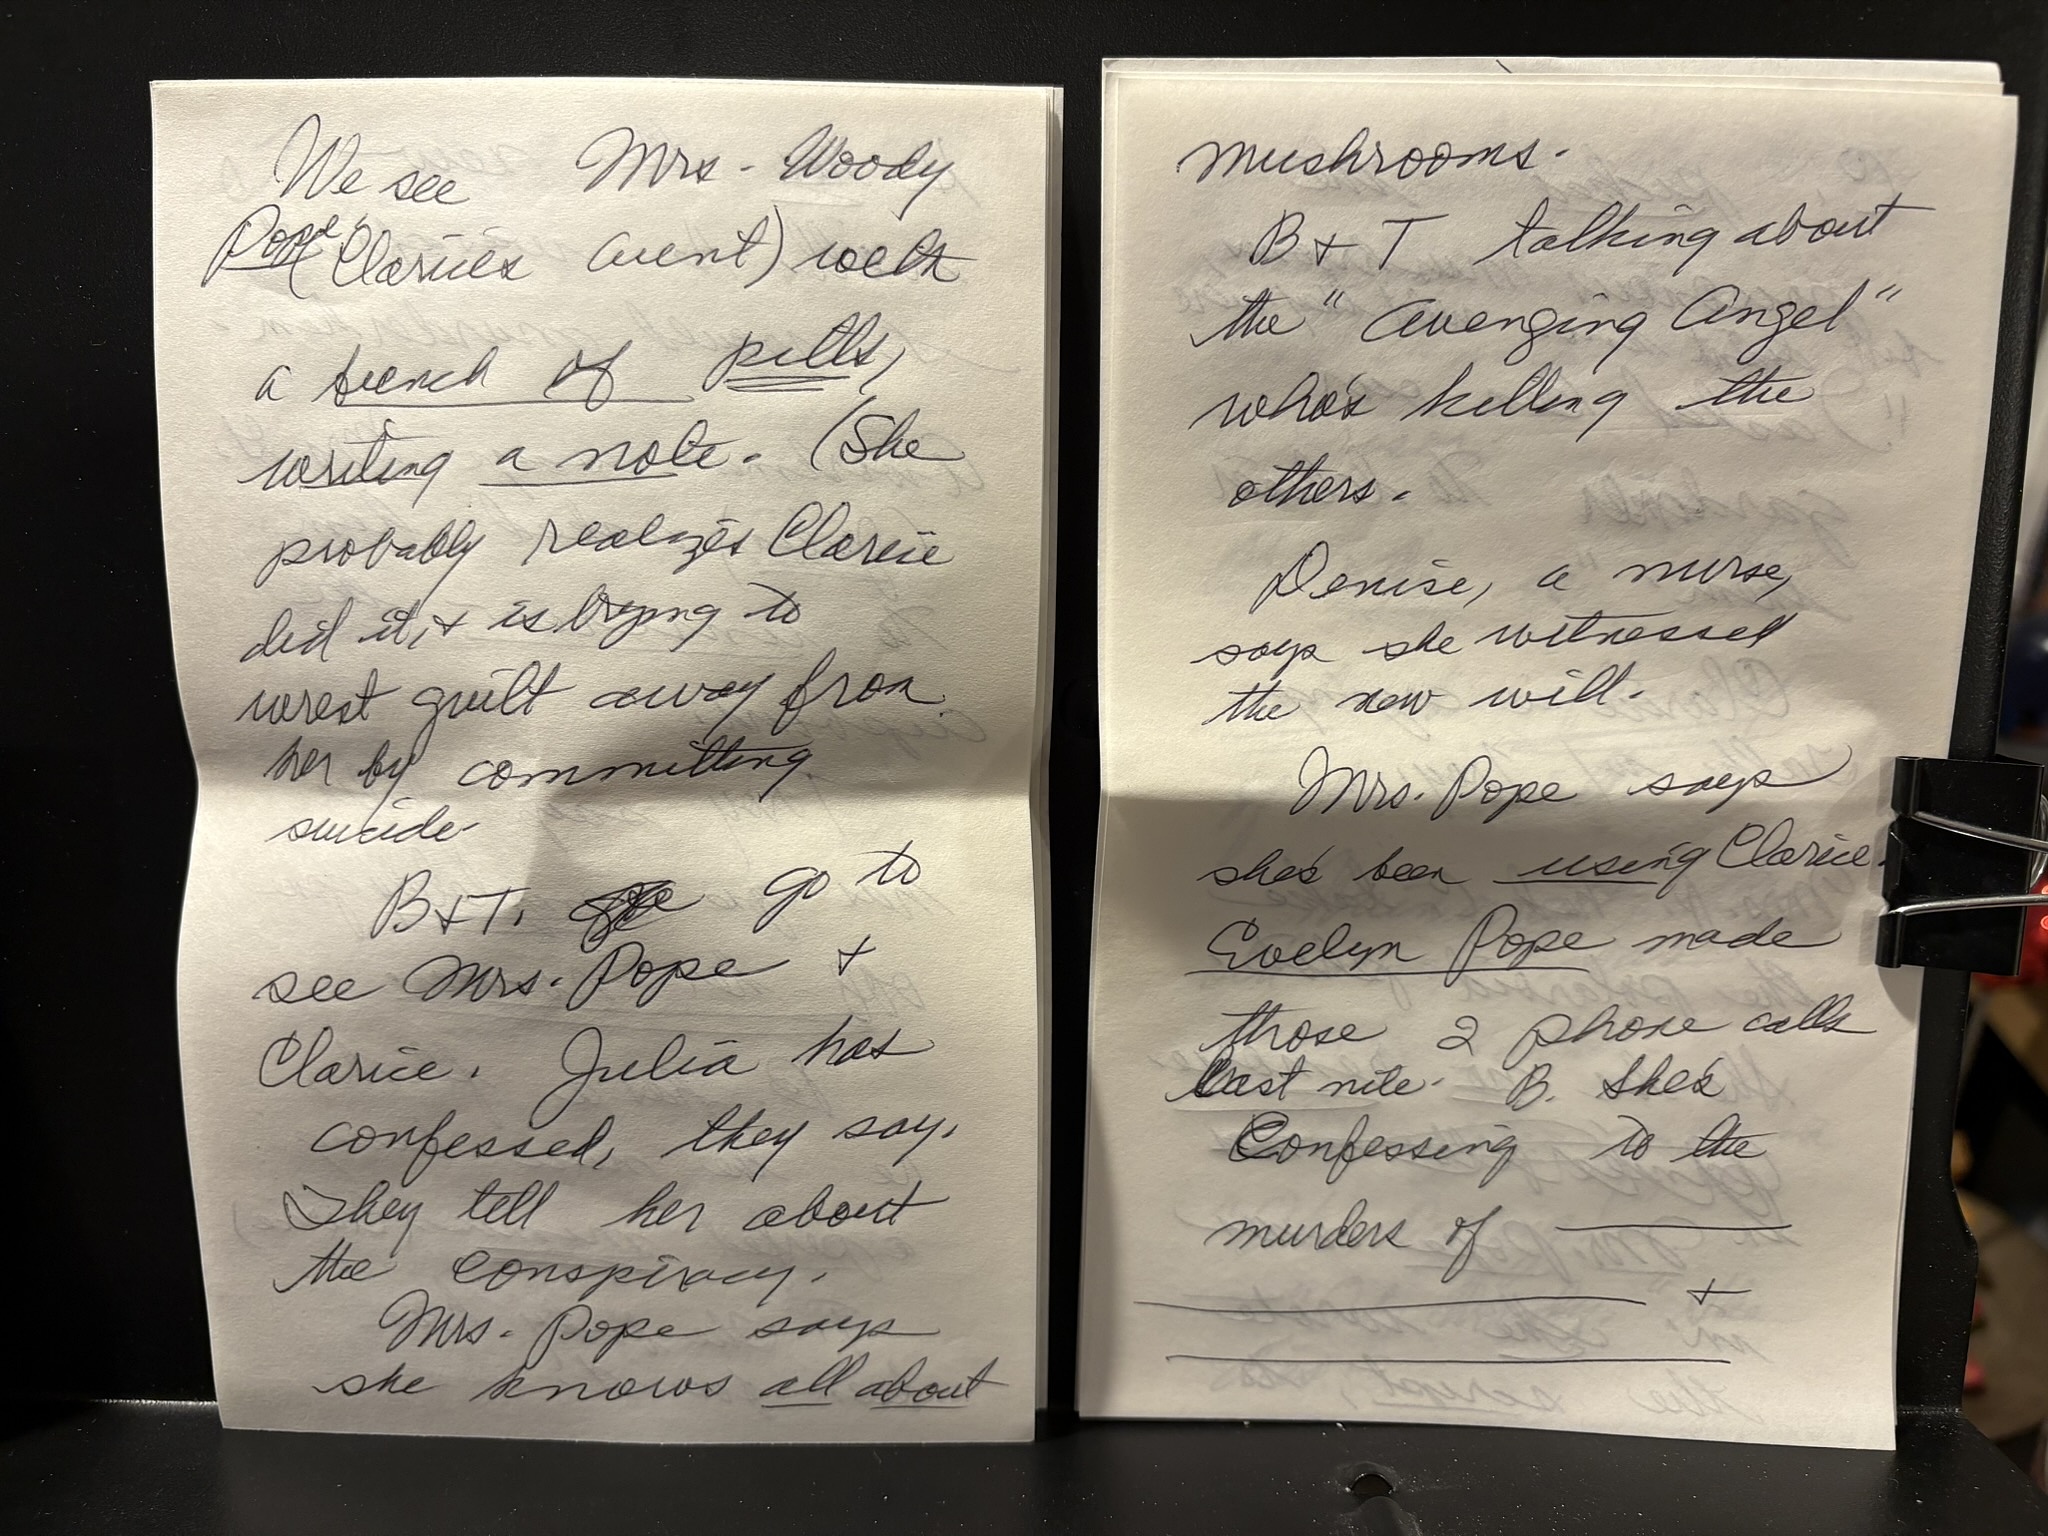 We see Mrs. Woody
Pope (Clarice's aunt) with
a bunch of pills,
writing a note. (She
probably realizes Clarice
did it, & is trying to
wrest guilt away from
her by committing
suicide.
B & T. go to
see Mrs. Pope &
Clarice. Julia has
confessed, they say.
They tell her about
the conspiracy.
Mrs. Pope says
she knows all about
mushrooms.
B & T talking about
the "avenging angel"
who's killing the
others.
Denise, a nurse,
says she witnessed
the new will.
Mrs. Pope says
she's been using Clarice.
Evelyn Pope made
those 2 phone calls
last nite. B. She's
Confessing to the
murders of
&